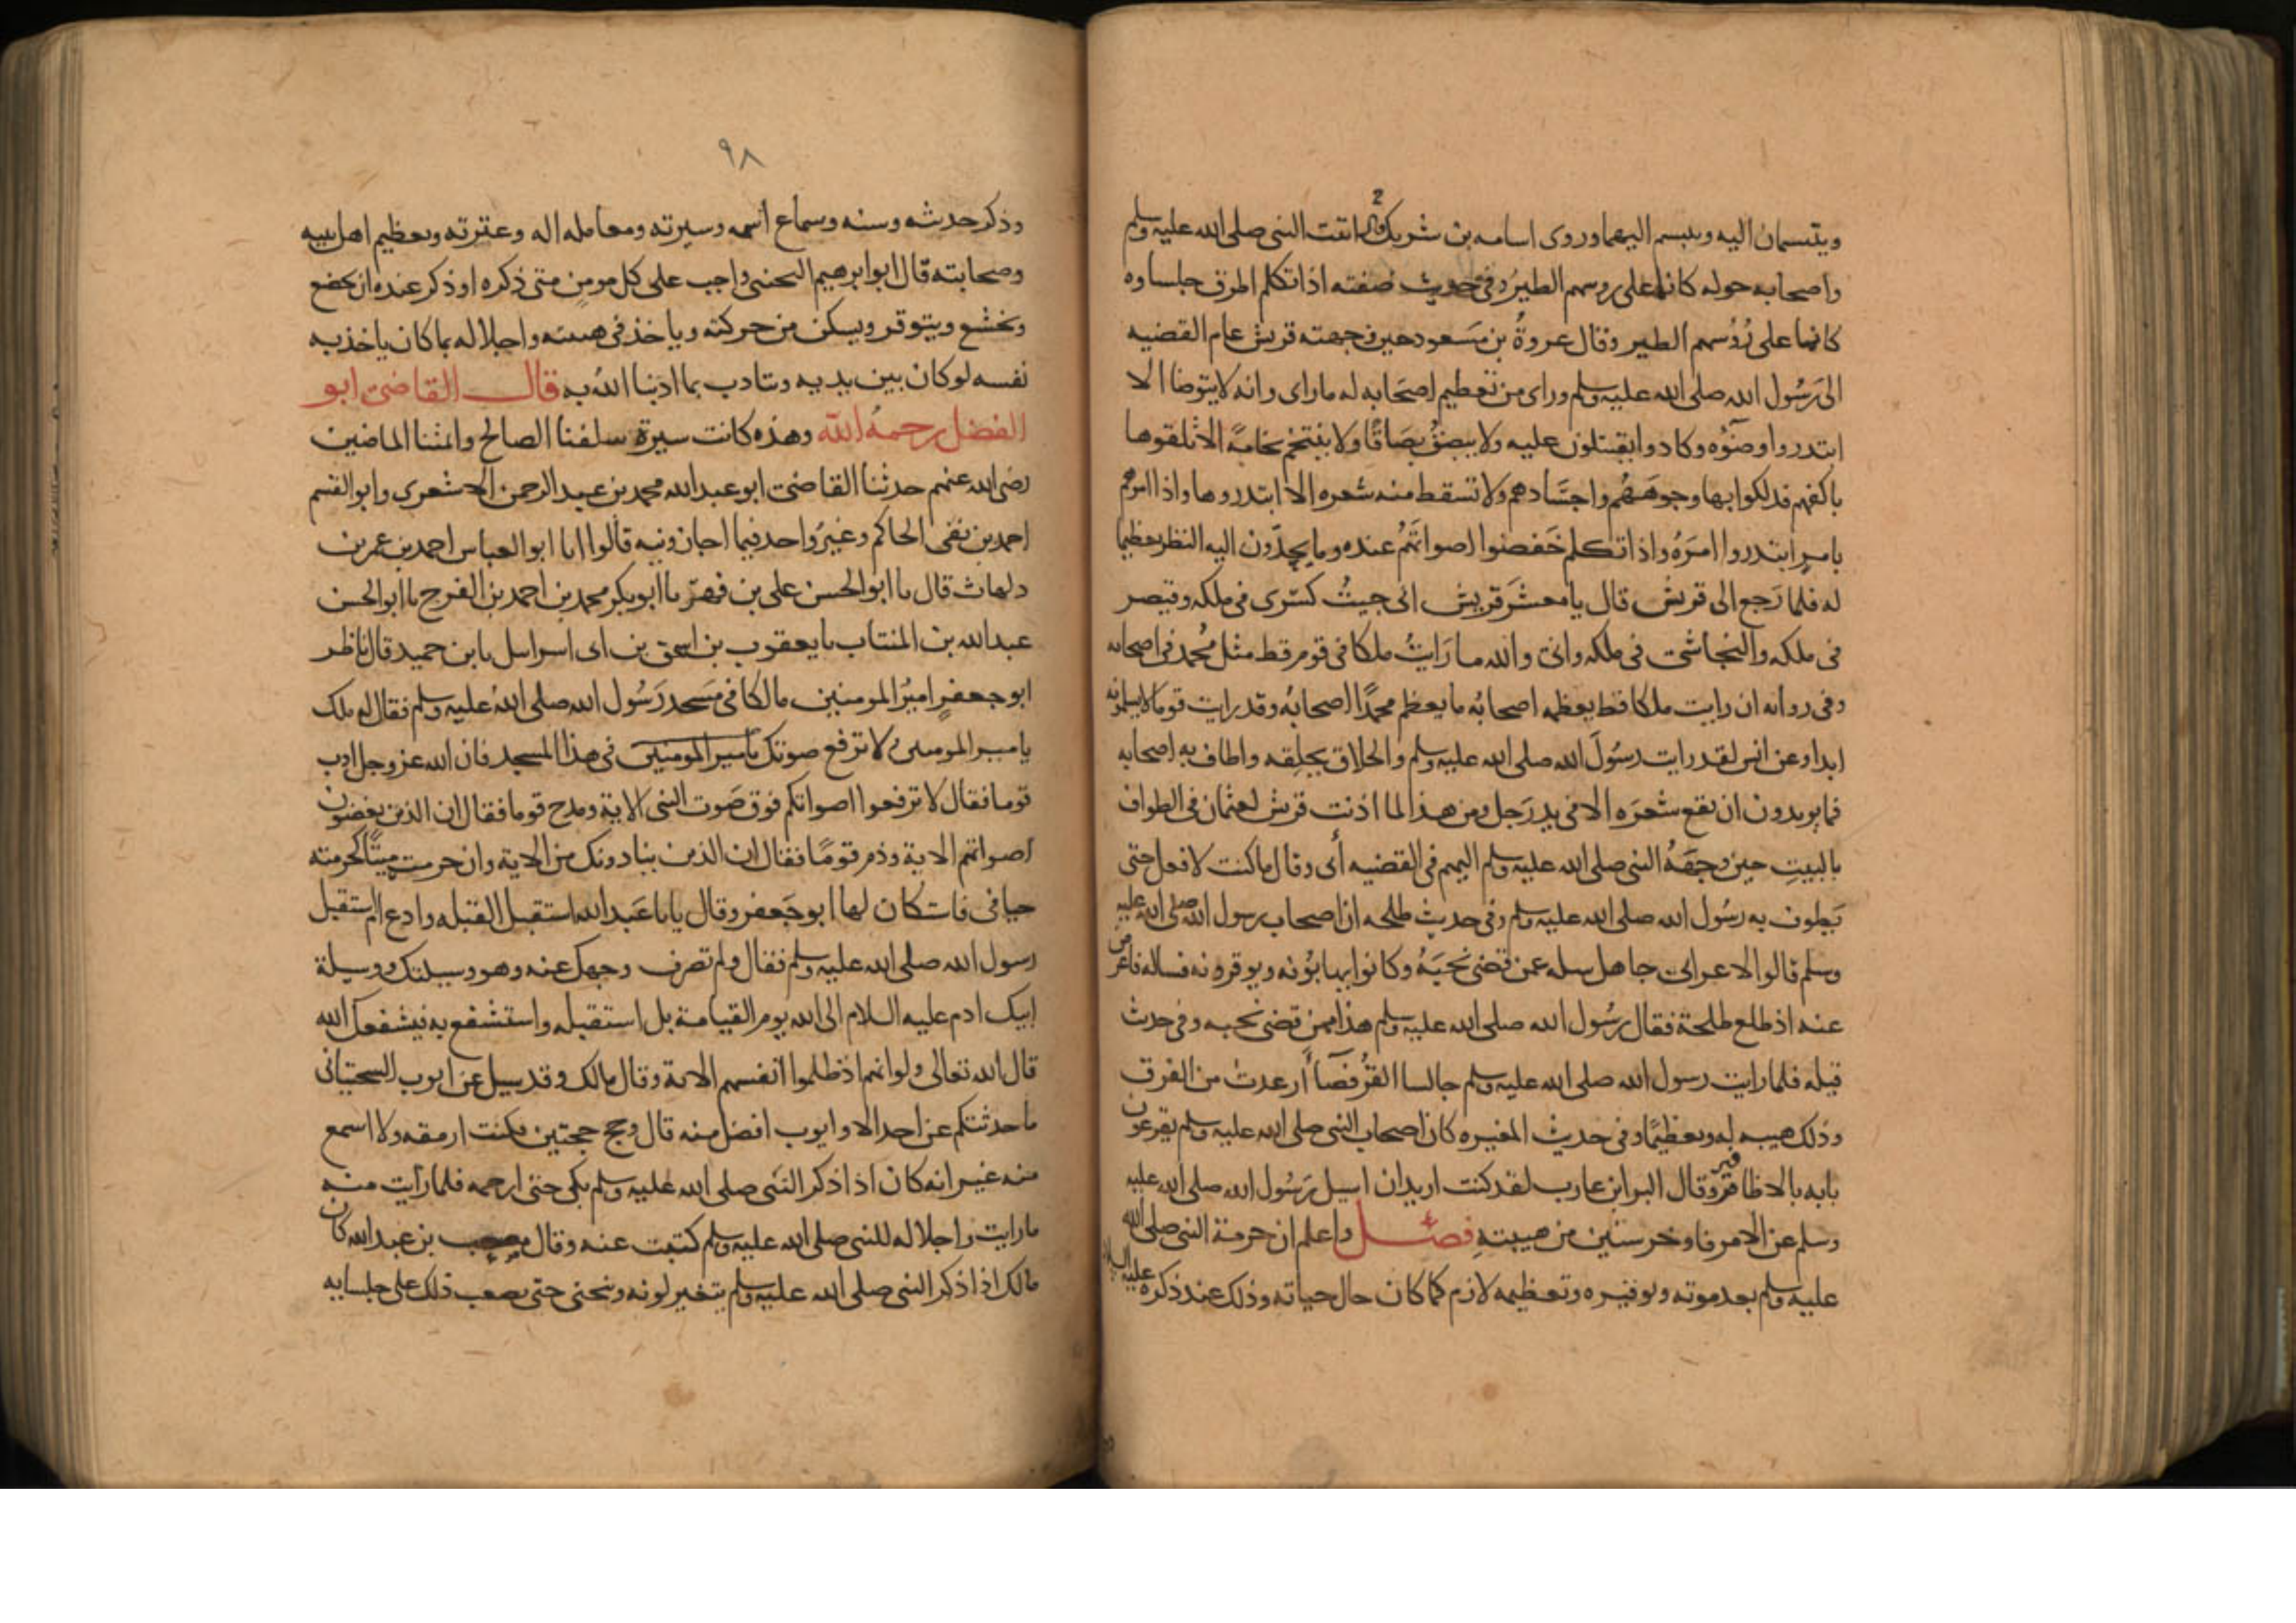 ويتبسمان اليه ويتبسم اليهما وروى اسامه بن شريك قال اتيت النبى صلى الله عليه وسلم
واصحابه حوله كانما على روسهم الطير وفى حديث صفته اذا تكلم اطرق جلساوه
كانما على رُؤُسهم الطير وقال عروةُ بن مَسعود حين وجهته قريش عام القضيه
الى رَسُول الله صلى الله عليه وسلم وراى من تعظيم اصحَابه له ما راى وانه لا يتوضا الا
ابتدروا وضوُه وكادوا يقتتلون عليه ولا يبصقُ بصَاقًا ولا يتنخم نخامةً الا تلقوها
باكفهم فدلكوا بها وجوهَهُم واجسَادهم ولا تسقط منه شعره الا ابتدروها واذا امرهم
بامرٍ ابتدروا امرَهُ واذا تكلم خَفضوا اصواتَهُم عنده وما يحِدّون اليه النظر تعظيما
له فلما رَجع الى قريش قال يا معشرَ قريش انى جيتُ كسرى فى ملكه وقيصر
فى ملكه والنجاشى فى ملكه وانى والله ما رَايتُ ملكا فى قوم قط مثل مُحمد فى اصحابه
وفى روايه ان رايت ملكا قط يعظمه اصحابُه ما يعظم محمدًا اصحابُه وقد رايت قوما لا يسلمونه
ابدا وعن انس لقد رايت رسُولَ الله صلى الله عليه وسلم والحلاق يحلِقه واطاف به اصحابه
فما يريدون ان تقع شعرَه الا فى يد رَجل ومن هذا لما اذنت قريش لعثمان فى الطواف
بالبيتِ حين وجهَهُ النبى صلى الله عليه وسلم اليهم فى القضيه أبى وقال ما كنت لافعل حتى
يَطوف به رسُول الله صلى الله عليه وسلم وفى حديث طلحه ان اصحاب رسول الله صلى الله عليه
وسلم قالوا لاعرابى جاهل سله عمن قضى نحبَهُ وكانوا يهابوُنه ويوقرونه فساله فاعرض
عنه اذ طلع طلحة فقال رسُول الله صلى الله عليه وسلم هذا ممن قضى نحبه وفى حديث
قيله فلما رايت رسول الله صلى الله عليه وسلم جالسا القرُفصَآ أُرعدت من الفرق
وذلك هيبه له وتعظيمًا وفى حديث المغيره كان اصحاب النبى صلى الله عليه وسلم يقرعون
بابه بالاظافير وقال البرا ابن عازب لقد كنت اريد ان اسيل رَسُول الله صلى الله عليه
وسلم عن الامر فاوخر سنين من هيبتهِ فصل واعلم ان حرمة النبى صلى الله
عليه وسلم بعد موته وتوقيره وتعظيمه لازم كما كان حال حياته وذلك عند ذكره عليه السلام
٩٨
وذكر حديثه وسنته وسماع اسمه وسيرته ومعامله اله وعترته وتعظيم اهل بيته
وصحابته قال ابو ابرهيم التجيبى واجب على كل مومن متى ذكره او ذكر عنده ان يخضع
ويخشع ويتوقر ويسكن من حركته وياخذ فى هيبته واجلاله بما كان ياخذ به
نفسه لو كان بين يديه ويتادب بما ادبنا اللهُ به قال القاضى ابو
الفضل رحمهُ الله وهذه كانت سيرة سلفنا الصالح وائمتنا الماضين
رضى الله عنهم حدثنا القاضى ابو عبد الله محمد بن عبد الرحمن الاشعرى وابو القسم
احمد بن بقى الحاكم وغيرُ واحد فيما اجازونيه قالوا انا ابو العباس احمد بن عمر بن
دلهاث قال نا ابو الحسن على بن فهر نا ابو بكر محمد بن احمد بن الفرج نا ابو الحسن
عبد الله بن المنتاب نا يعقوب بن اسحق بن ابى اسراىيل نا بن حميد قال ناظر
ابو جعفرٍ اميرُ المومنين مالكا فى مَسجد رَسُول الله صلى اللهُ عليه وسلم فقال له ملك
يا امير المومنين لا ترفع صوتك يا امير المومنين فى هذا المسجد فان الله عز وجل ادب
قوما فقال لا ترفعوا اصواتكم فوق صَوت النبى الاية ومدح قوما فقال ان الذين يغضون
اصواتهم الاية وذم قومًا فقال ان الذين ينادونك من الاية وان حرمته ميتًا كحرمته
حيا فى فاستكان لها ابو جَعفر وقال يا ابا عَبد الله استقبل القبله وادع ام استقبل
رسول الله صلى الله عليه وسلم فقال ولم تصرف وجهك عنه وهو وسيلتك ووسيلة
ابيك ادم عليه السلام الى الله يوم القيامة بل استقبله واستشفع به فيشفعك الله
قال الله تعالى ولو انهم اذ ظلموا انفسهم الاية وقال مالك وقد سيل عن ايوب السختيانى
ما حدثتكم عن احد الا وايوب افضل منه قال وحج حجتين فكنت ارمقه ولا اسمع
منه غير انه كان اذا ذكر النبى صلى الله عليه وسلم بكى حتى ارحمه فلما رايت منه
ما رايت واجلاله للنبى صلى الله عليه وسلم كتبت عنه وقال مصعب بن عبد الله كان
مالك اذا ذكر النبى صلى الله عليه وسلم يتغير لونه وينحنى حتى يصعب ذلك على جلسايه